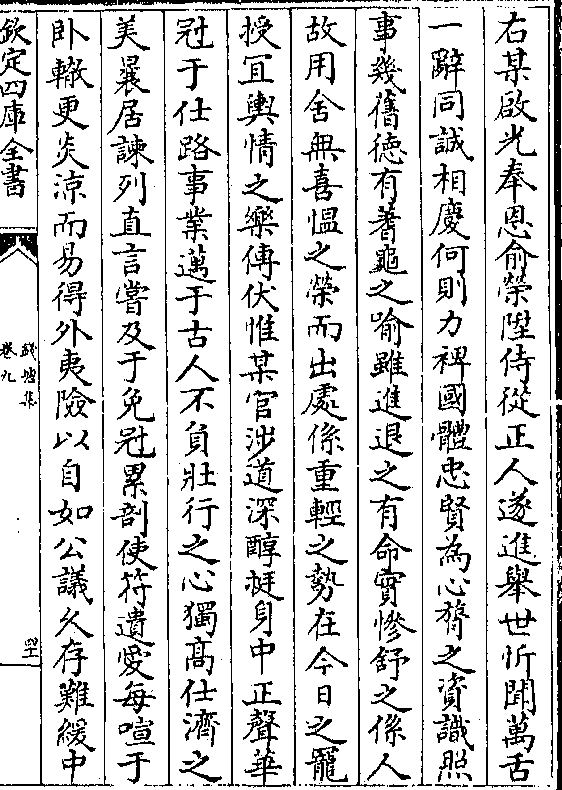 右某啟光奉恩俞榮陞侍從正人遂進舉世忻聞萬舌
一辭同誠相慶何則力裨國體忠賢為心膂之資識照
事幾舊徳有蓍龜之喻雖進退之有命實慘舒之係人
故用舍無喜愠之榮而出處係重輕之勢在今日之寵
授冝輿情之樂傳伏惟某官涉道深醇挺身中正聲華
冠于仕路事業邁于古人不負壯行之心獨髙仕濟之
美曩居諫列直言嘗及于免冠累剖使符遺愛每喧于
卧轍更炎涼而易得外夷險以自如公議乆存難緩中
欽定四庫全書
錢塘集
卷九